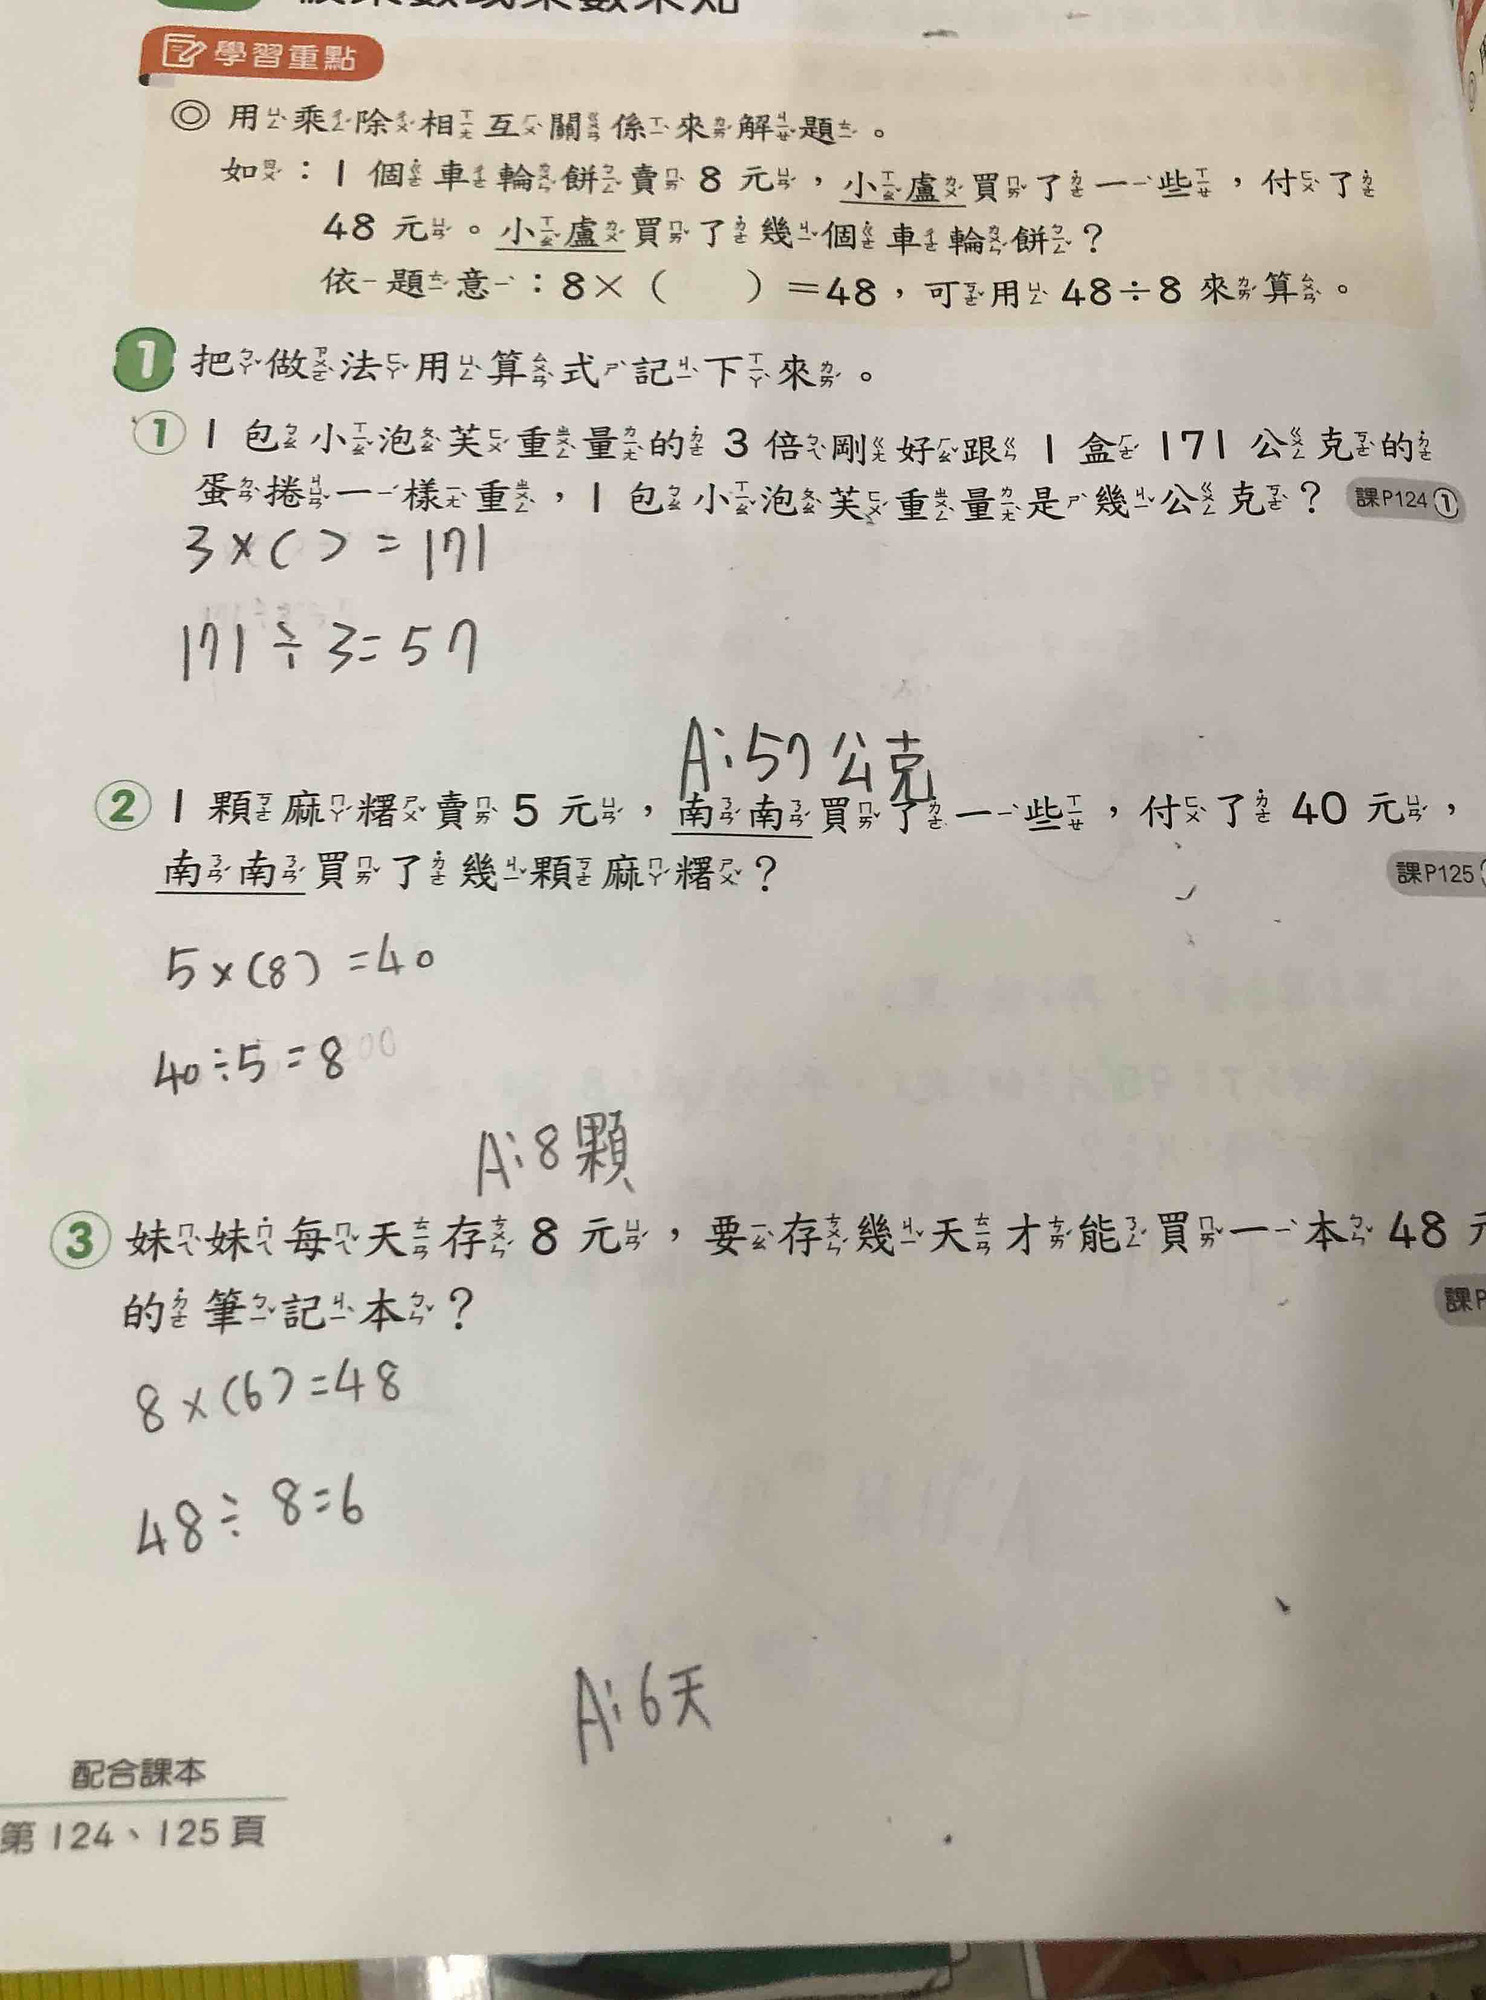 學習重點
◎用乘除相互關係來解題。
如：1個車輪餅賣8元，小盧買了一些，付了
48元。小盧買了幾個車輪餅？
依題意：8×（　　）＝48，可用48÷8來算。
1 把做法用算式記下來。
① 1包小泡芙重量的3倍剛好跟1盒171公克的
蛋捲一樣重，1包小泡芙重量是幾公克？ 課P124①
3×( )=171
171÷3=57
A:57公克
② 1顆麻糬賣5元，南南買了一些，付了40元，
南南買了幾顆麻糬？ 課P125
5×(8)=40
40÷5=8
A:8顆
③ 妹妹每天存8元，要存幾天才能買一本48元
的筆記本？ 課P
8×(6)=48
48÷8=6
A:6天
配合課本
第124、125頁